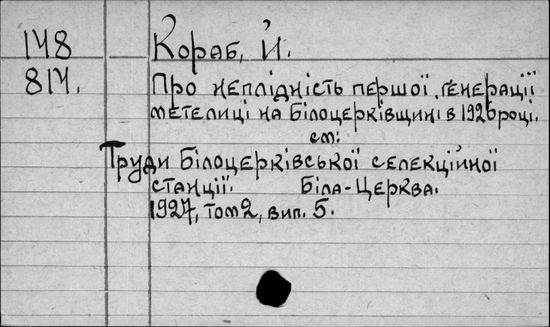 148
814.
Кораб, Й.
Про неплідність першої генерації
метелиці на Білоцерківщині в 1926 році.
см:
Труди Білоцерківської селекційної
станції. Біла-Церква.
1927, том 2, вип. 5.